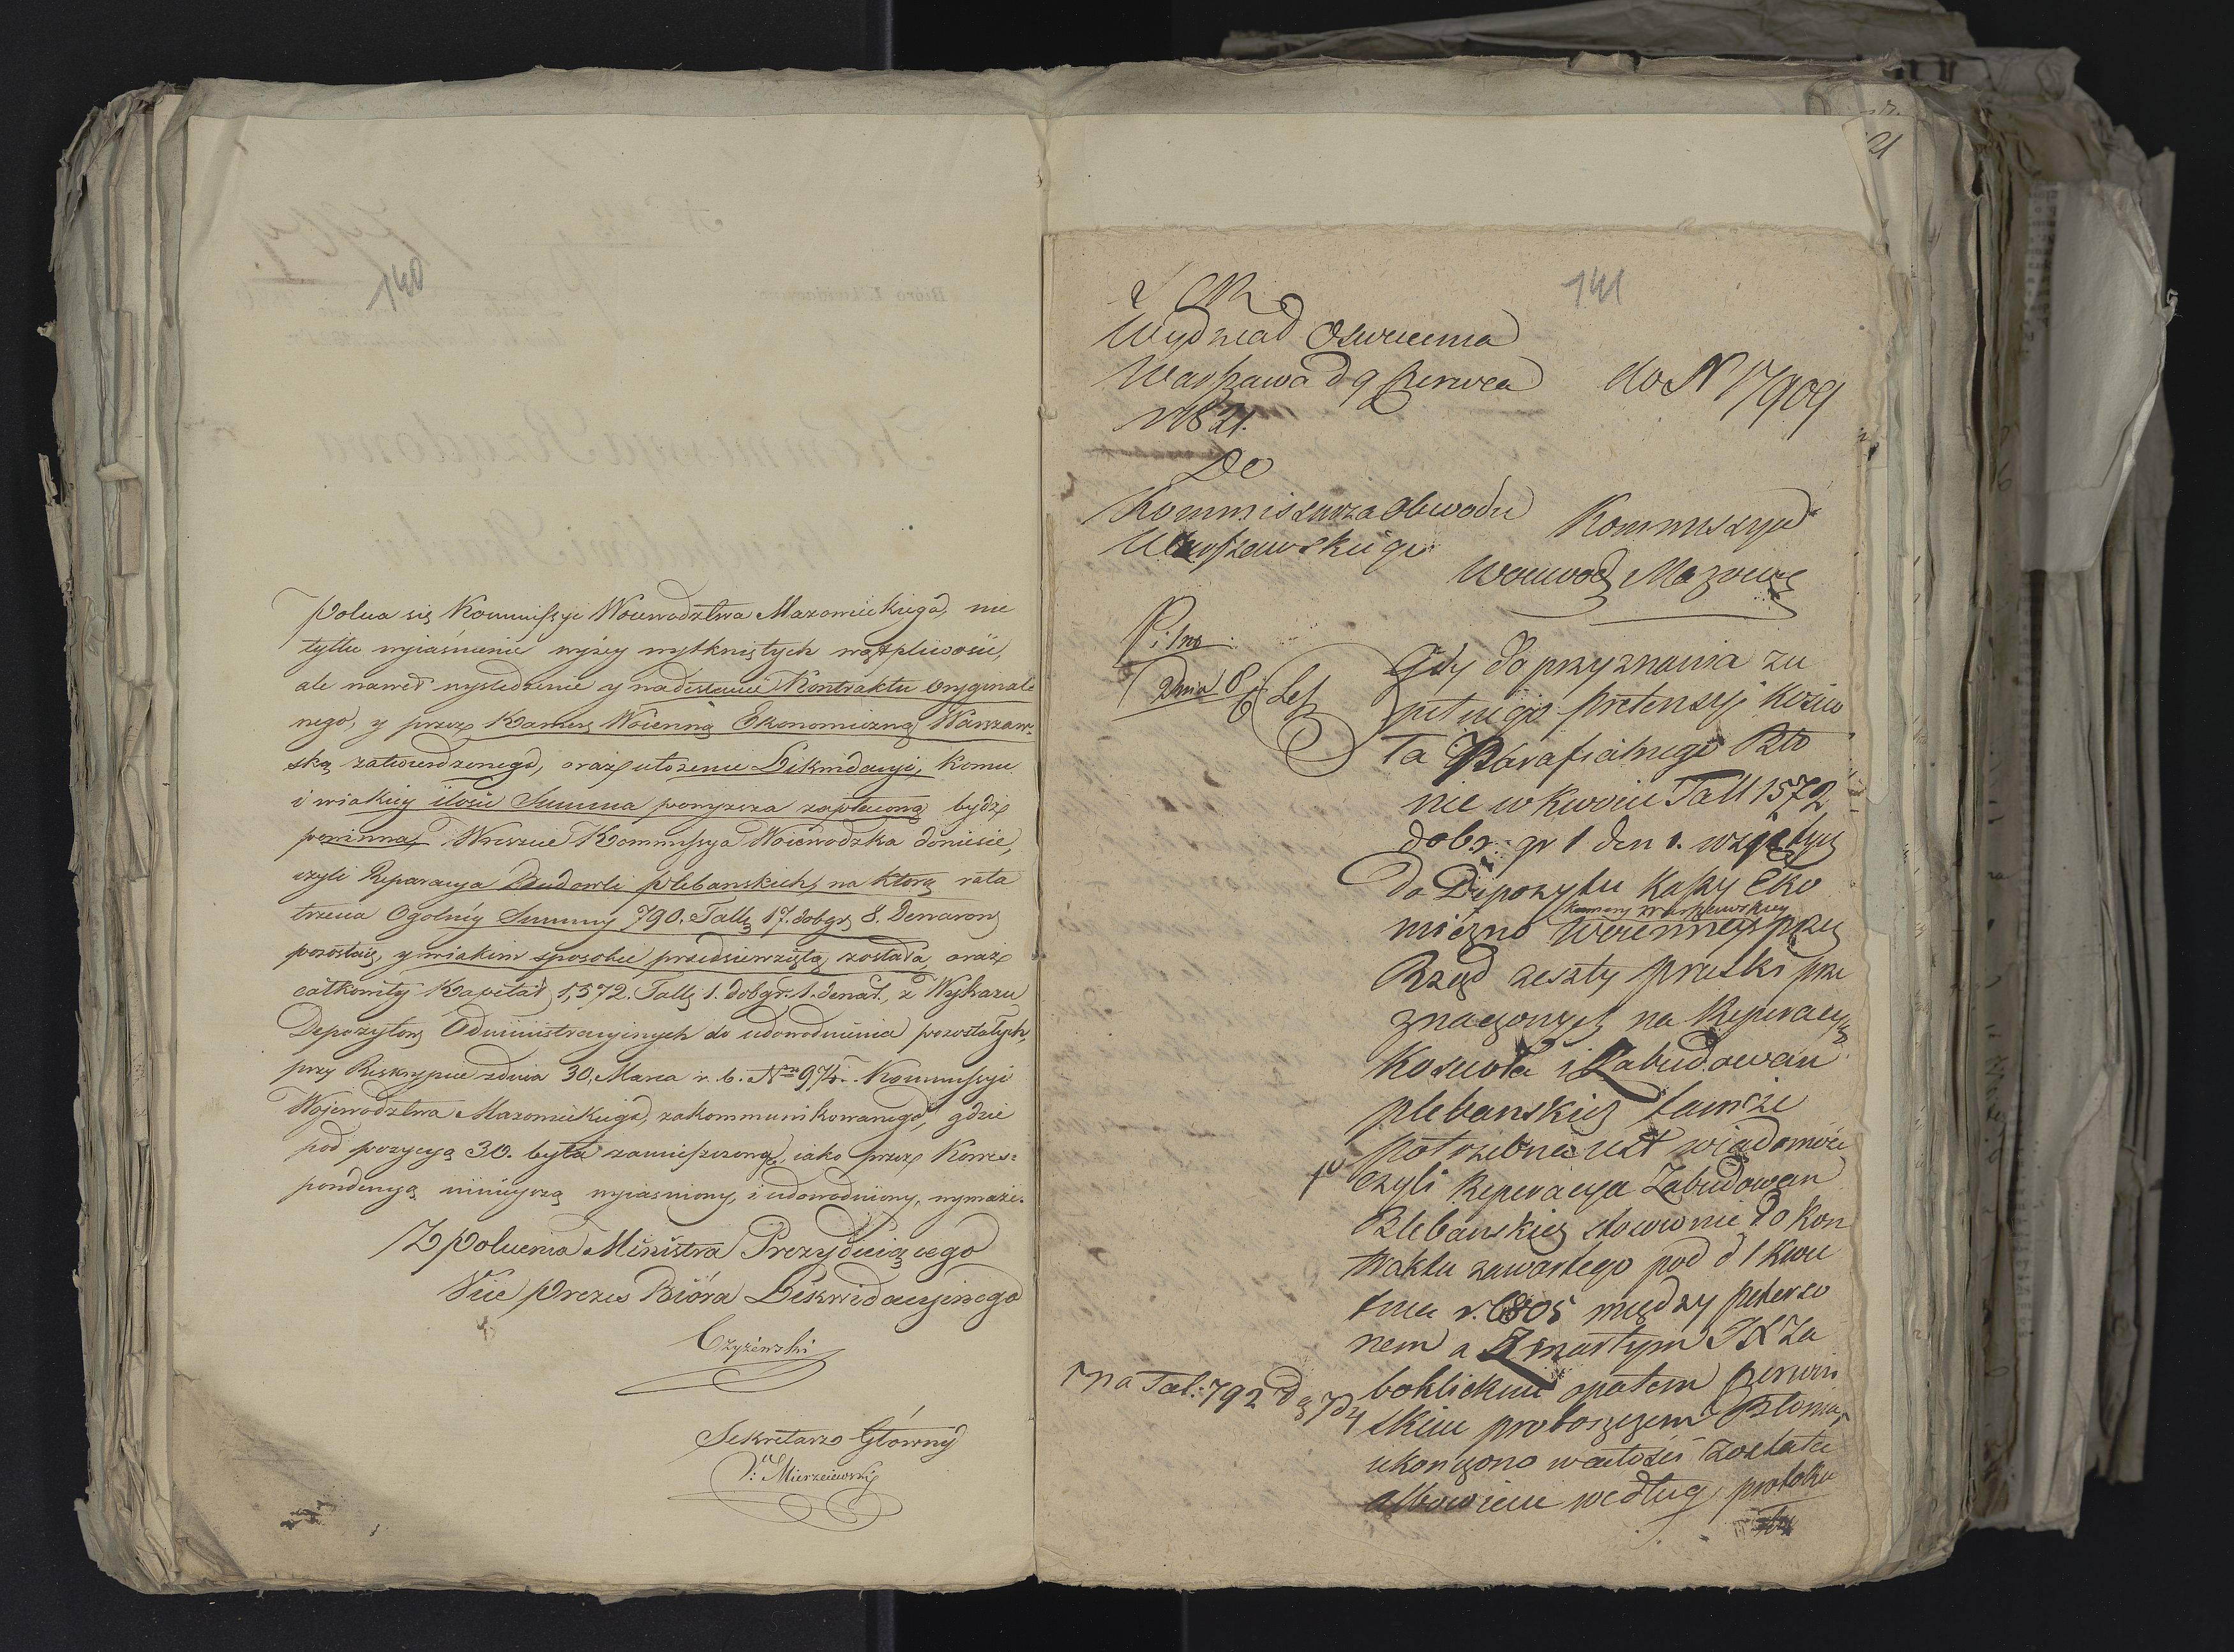 140
poleca się Kommissyi Woiewodztwa Mazowieckiego, nie
tylko wyiaśnienie wyżey wytkniętych wątpliwości,
ale nawet wyśledzenie y nadesłanie Kontraktu Oryginal=
nego, y przez Kamerę Woienną Ekonomiczną Warszaw=
ską zatwierdzonego, oraz ułożenie Likwidacyi, komu
i wiakiey ilości Summa powyższa zapłaconą bydź
powinna. Wreszcie Kommissya Woiewodzka doniesie,
czyli Reparacya Budowli plebanskich, na którą rata
trzecia Ogolney Summy 790. Tall. 17. dobgr. 8. Denarow
pozostaie, y wiakim sposobie przedsięwziętą została, oraz
całkowity Kapitał 1,572. Tall. 1. dobgr. 1. denar., z Wykazu
Depozytow Administracyinych do udowodnienia pozostałych,
przy Reskrypcie zdnia 30. Marca r. b. Nro 974. Kommissyi
Wojewodztwa Mazowieckiego, zakommunikowanego, gdzie
pod pozycyą 30. była zamieszczona, iako przez Korres=
pondencyą ninieyszą wyiasniony, i udowodniony, wymaże.
Z polecenia Ministra Prezyduiącego
Vice Prezes Bióra Likwidacyinego
Czyżewski
Sekretarz Główny
Mierzeiewski
141
Wydział Oswiecenia
Warszawa d 9 Czerwca
r 1821.
do N 17909
Do
Kommissarza Obwodu
Warszawskiego
Kommissya
Woiewodz Mazowie
Pilno
Dnia 8
Gdy do przyznania zu
pełnego pretensyi Koscio
ła Parafialnego Bło
nie w kwocie Tall 1572
dobr. gr 1 den 1. wziętych
do Depozytu Kassy Eko
Kamery Warszawskiey
miczno Woienney przez
Rząd zeszły pruski prze
znaczonych na Reperacyą
Koscioła i Zabudowań
plebanskich tamże
potrzebna iest wiadomość
1o czyli Reperacya Zabudowan
Plebanskich stosownie do Kon
traktu zawartego pod d 1 Kwie
tnia r. 1805 między Peterso
nem a Zmarłym JX Za
boklickim opatem Czerwin
skim proboszczem Błonia,
na Tal: 792
ukonczono wcałości została
albowiem według protoku
łu